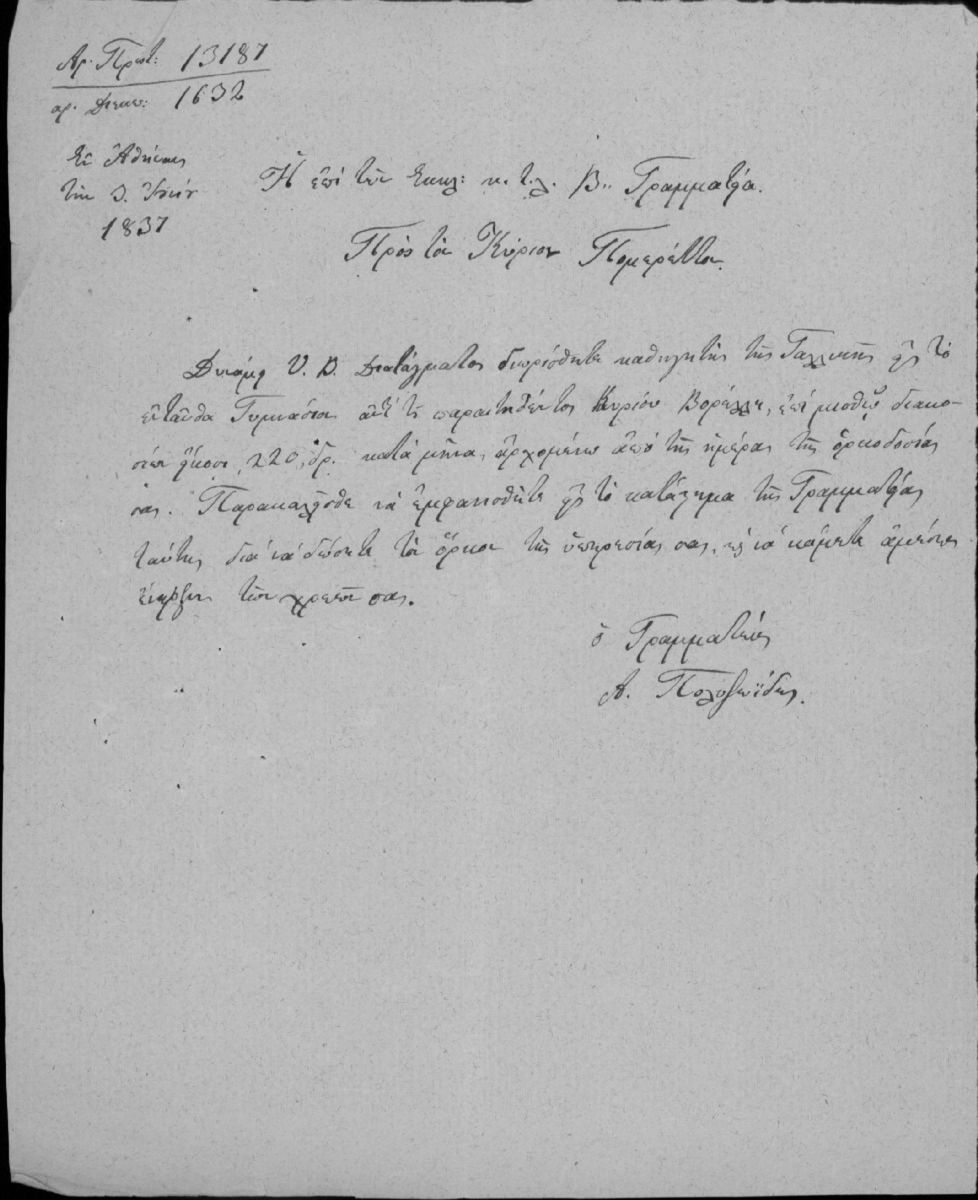 Αρ. Πρωτ: 13187
αρ. Διεκπ: 1632
Ἐν Ἀθήναις
τὴν 1837
Ἡ ἐπὶ τῶν Ἐκκλ: κ.τ.λ. Β.. Γραμματεία.
Πρὸς τὸν Κύριον Πομερέττον.
Δυνάμει Υ. Β. Διατάγματος διωρίσθητε καθηγητὴς τῆς Γαλλικῆς εἰς τὸ
ἐνταῦθα Γυμνάσιον ἀντὶ τοῦ παραιτηθέντος Κυρίου ἐπὶ μισθῷ διακο-
σίων εἴκοσι 220, δρ. κατὰ μῆνα, ἀρχομένῳ ἀπὸ τῆς ἡμέρας τῆς ὁρκοδοσίας
σας. Παρακαλεῖσθε νὰ ἐμφανισθῆτε εἰς τὸ κατάστημα τῆς Γραμματείας
ταύτης διὰ νὰ δώσετε τὸν ὅρκον τῆς ὑπηρεσίας σας, καὶ νὰ κάμετε ἀμέσως
ἔναρξιν τῶν χρεῶν σας.
ὁ Γραμματεὺς
Α. Πολυζωΐδης.